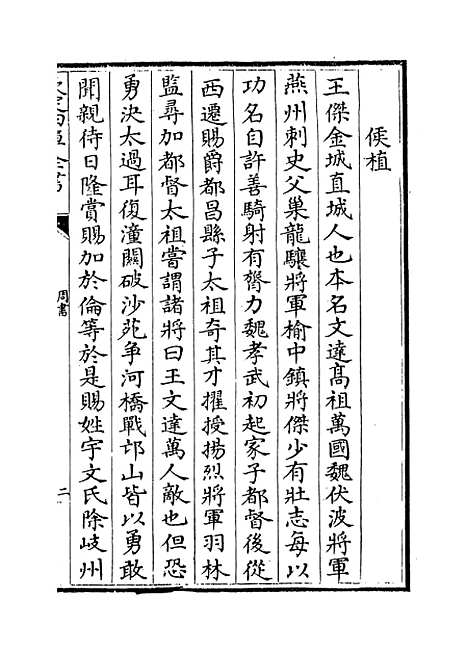 侯植
王傑金城直城人也本名文達髙祖萬國魏伏波將軍
燕州刺史父巢龍驤將軍榆中鎮將傑少有壯志每以
功名自許善騎射有膂力魏孝武初起家子都督後從
西遷賜爵都昌縣子太祖奇其才擢授揚烈將軍羽林
監尋加都督太祖嘗謂諸將曰王文達萬人敵也但恐
勇決太過耳復潼關破沙苑争河橋戰邙山皆以勇敢
聞親待日隆賞賜加於倫等於是賜姓宇文氏除岐州
周書
二